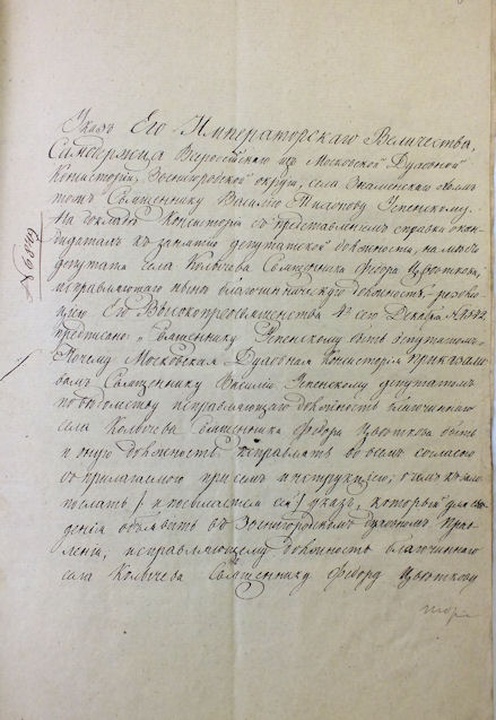 Указъ Его Императорскаго Величества,
Самодержца Всероссійскаго изъ Московской Духовной
Консисторіи, Звенигородской округи, села Знаменскаго
Священнику Василію Успенскому.
На докладѣ Консисторіи съ представленіемъ справки о кан-
дидатахъ къ занятію депутатской должности, на мѣсто
депутата села Колычева Священника Федора Цвѣткова,
исправляющаго нынѣ благочинническую должность, резолю-
ціею Его Высокопреосвященства 4го сего Декабря №
предписано: „Священнику Успенскому быть депутатомъ“
Почему Московская Духовная Консисторія приказали:
вамъ Священнику Василію Успенскому депутатомъ
по вѣдомству исправляющаго должность благочиннаго
села Колычева священника Федора Цвѣткова быть
и оную должность исправлять во всемъ согласно
съ прилагаемою при семъ инструкціею; о чемъ къ вамъ
послать / и посылается сей / указъ, который для свѣ-
денія объявить въ Звенигородскомъ Духовномъ Прав-
леніи, исправляющему должность благочиннаго
села Колычева Священнику Федору Цвѣткову
№ 6549